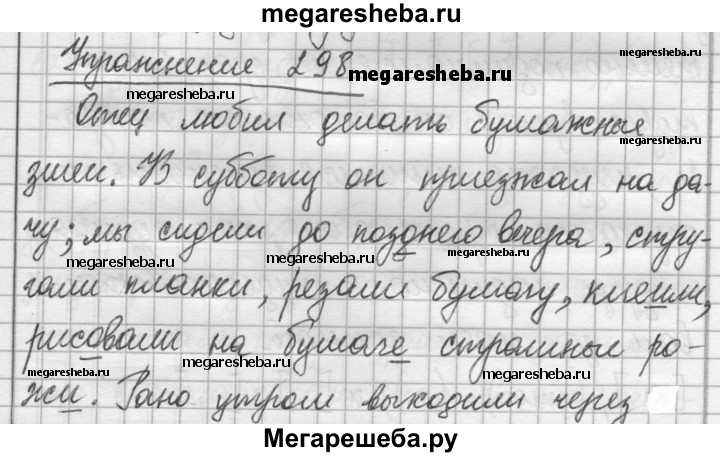 megaresheba.ru
Упражнение 298
megaresheba.ru
megaresheba.ru
megaresheba.ru
Отец любил делать бумажные
megaresheba.ru
змеи. В суббату он приезжал на да-
чу; мы сидели до позднего вечера, стру-
megaresheba.ru
megaresheba.ru
гали планки, резали бумагу, клеили,
рисовали на бумаге страшные ро-
megaresheba.ru
megaresheba.ru
megaresheba.ru
жи. Рано утром выходили через
Мегарешеба.ру